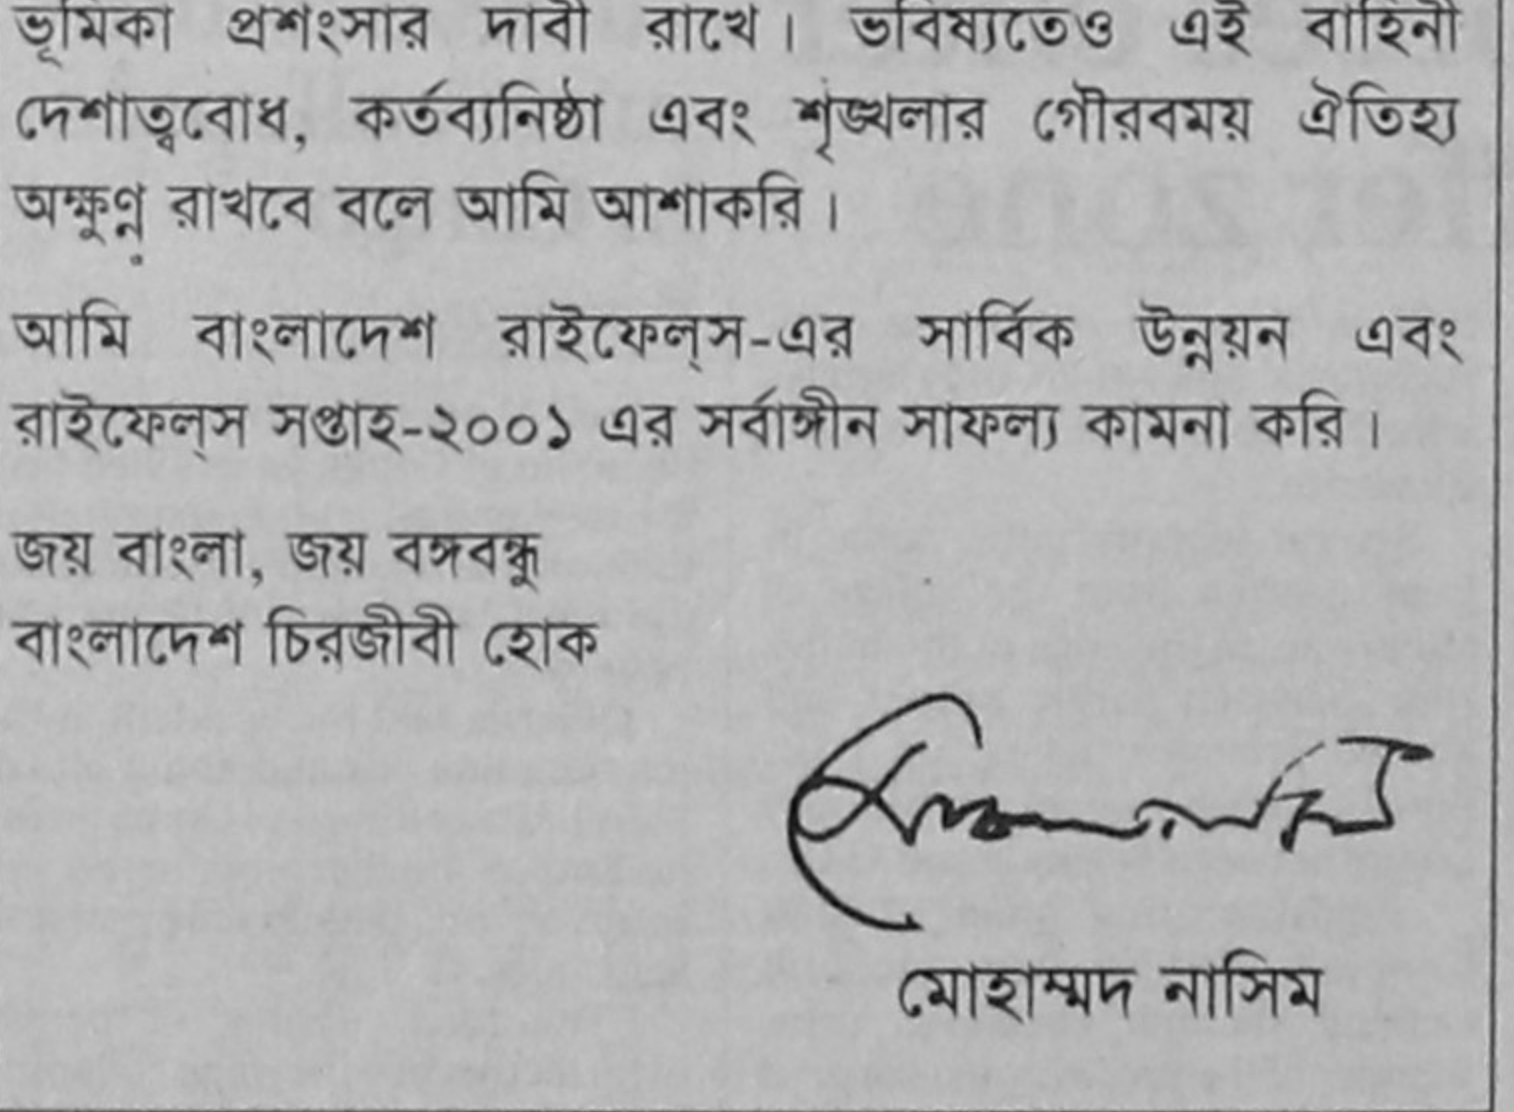 ভূমিকা প্রশংসার দাবী রাখে। ভবিষ্যতেও এই বাহিনী
দেশাত্ববোধ, কর্তব্যনিষ্ঠা এবং শৃঙ্খলার গৌরবময় ঐতিহ্য
অক্ষুণ্ণ রাখবে বলে আমি আশাকরি।
আমি বাংলাদেশ রাইফেল্‌স-এর সার্বিক উন্নয়ন এবং
রাইফেল্‌স সপ্তাহ-২০০১ এর সর্বাঙ্গীন সাফল্য কামনা করি।
জয় বাংলা, জয় বঙ্গবন্ধু
বাংলাদেশ চিরজীবী হোক
মোহাম্মদ নাসিম